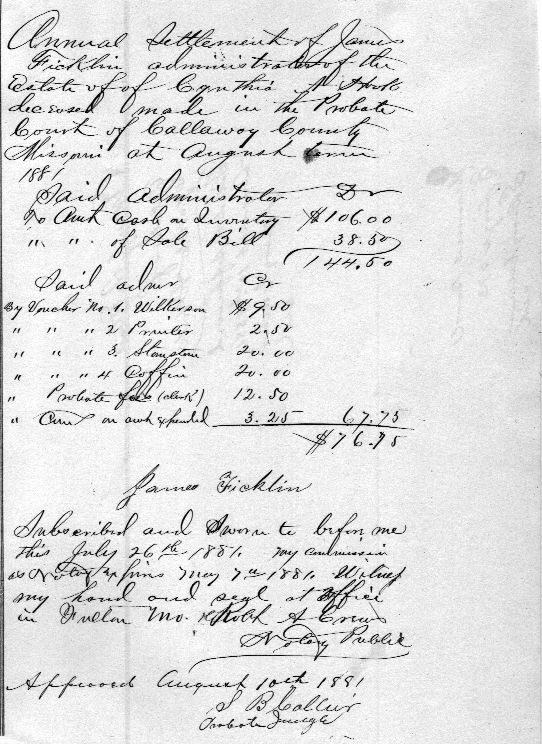 Annual Settlement of James
Ficklin administrator of the
Estate of of Cynthia A
deceased made in the Probate
Court of Callaway County
Missouri at August term
1881
Said administrator Dr
To Amt Cash on Inventory $106.00
" " of Sale Bill 38.50
144.50
Said admr Cr
By Voucher No. 1. Wilkerson $9.50
" " " 2 Printer 2.50
" " " 3. 20.00
" " " 4 Coffin 20.00
" Probate fees (clerk) 12.50
" Com on amt expended 3.25 67.75
$76.75
James Ficklin
Subscribed and Sworn to before me
this July 26th 1881. my commission
as Notary Expires May 7th 1881. Witness
my hand and seal at office
in Fulton Mo. Robt A Crews
Notary Public
Approved August 10th 1881
S B Collier
Probate Judge